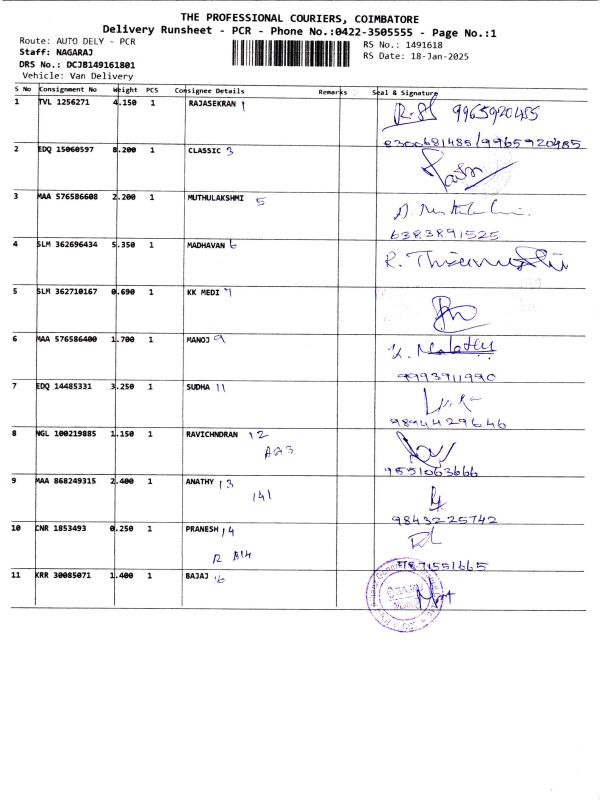 THE PROFESSIONAL COURIERS, COIMBATORE
Delivery Runsheet - PCR - Phone No.:0422-3505555 - Page No.:1
Route: AUTO DELY - PCR
RS No.: 1491618
Staff: NAGARAJ
RS Date: 18-Jan-2025
DRS No.: DCJB149161801
Vehicle: Van Delivery
S No Consignment No Weight PCS Consignee Details Remarks Seal & Signature
1 TVL 1256271 4.150 1 RAJASEKRAN 1 9965920455
8300681485/9965920485
2 EDQ 15060597 8.200 1 CLASSIC 3
3 MAA 576586608 2.200 1 MUTHULAKSHMI 5
6383891525
4 SLM 362696434 5.350 1 MADHAVAN 6
5 SLM 362710167 0.690 1 KK MEDI 7
6 MAA 576586400 1.700 1 MANOJ 9
9993911990
7 EDQ 14485331 3.250 1 SUDHA 11
9894429646
8 NGL 100219885 1.150 1 RAVICHNDRAN 12
9551063666
9 MAA 868249315 2.400 1 ANATHY 13
141
9843225742
10 CNR 1853493 0.250 1 PRANESH 14
R B14
9871551665
11 KRR 30085071 1.400 1 BAJAJ 16